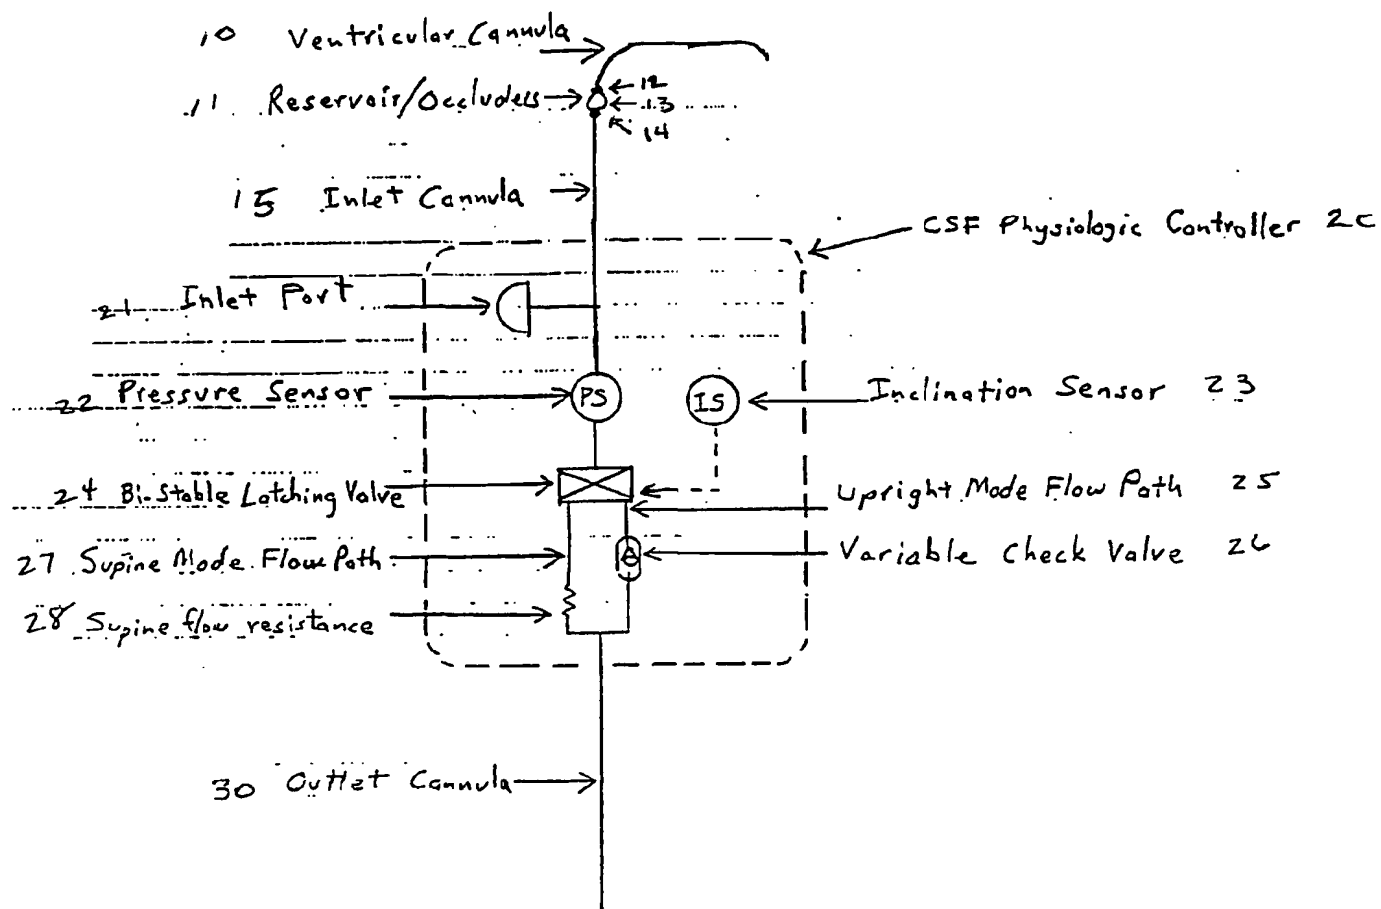 10 Ventricular Cannula
12
11 Reservoir/Occluders
13
14
15 Inlet Cannula
CSF Physiologic Controller 20
21 Inlet Port
22 Pressure Sensor
PS
IS
Inclination Sensor 23
24 Bi-Stable Latching Valve
Upright Mode Flow Path 25
27 Supine Mode Flow Path
Variable Check Valve 26
28 Supine flow resistance
30 Outlet Cannula